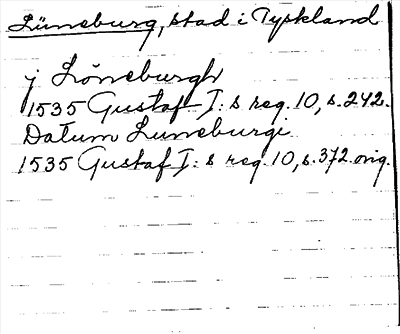 Lüneburg, stad i Tyskland
j Löneburgh
1535 Gustaf I: s reg. 10, s. 242.
Datum Luneburgi
1535 Gustaf I: s reg. 10, s. 372 orig.